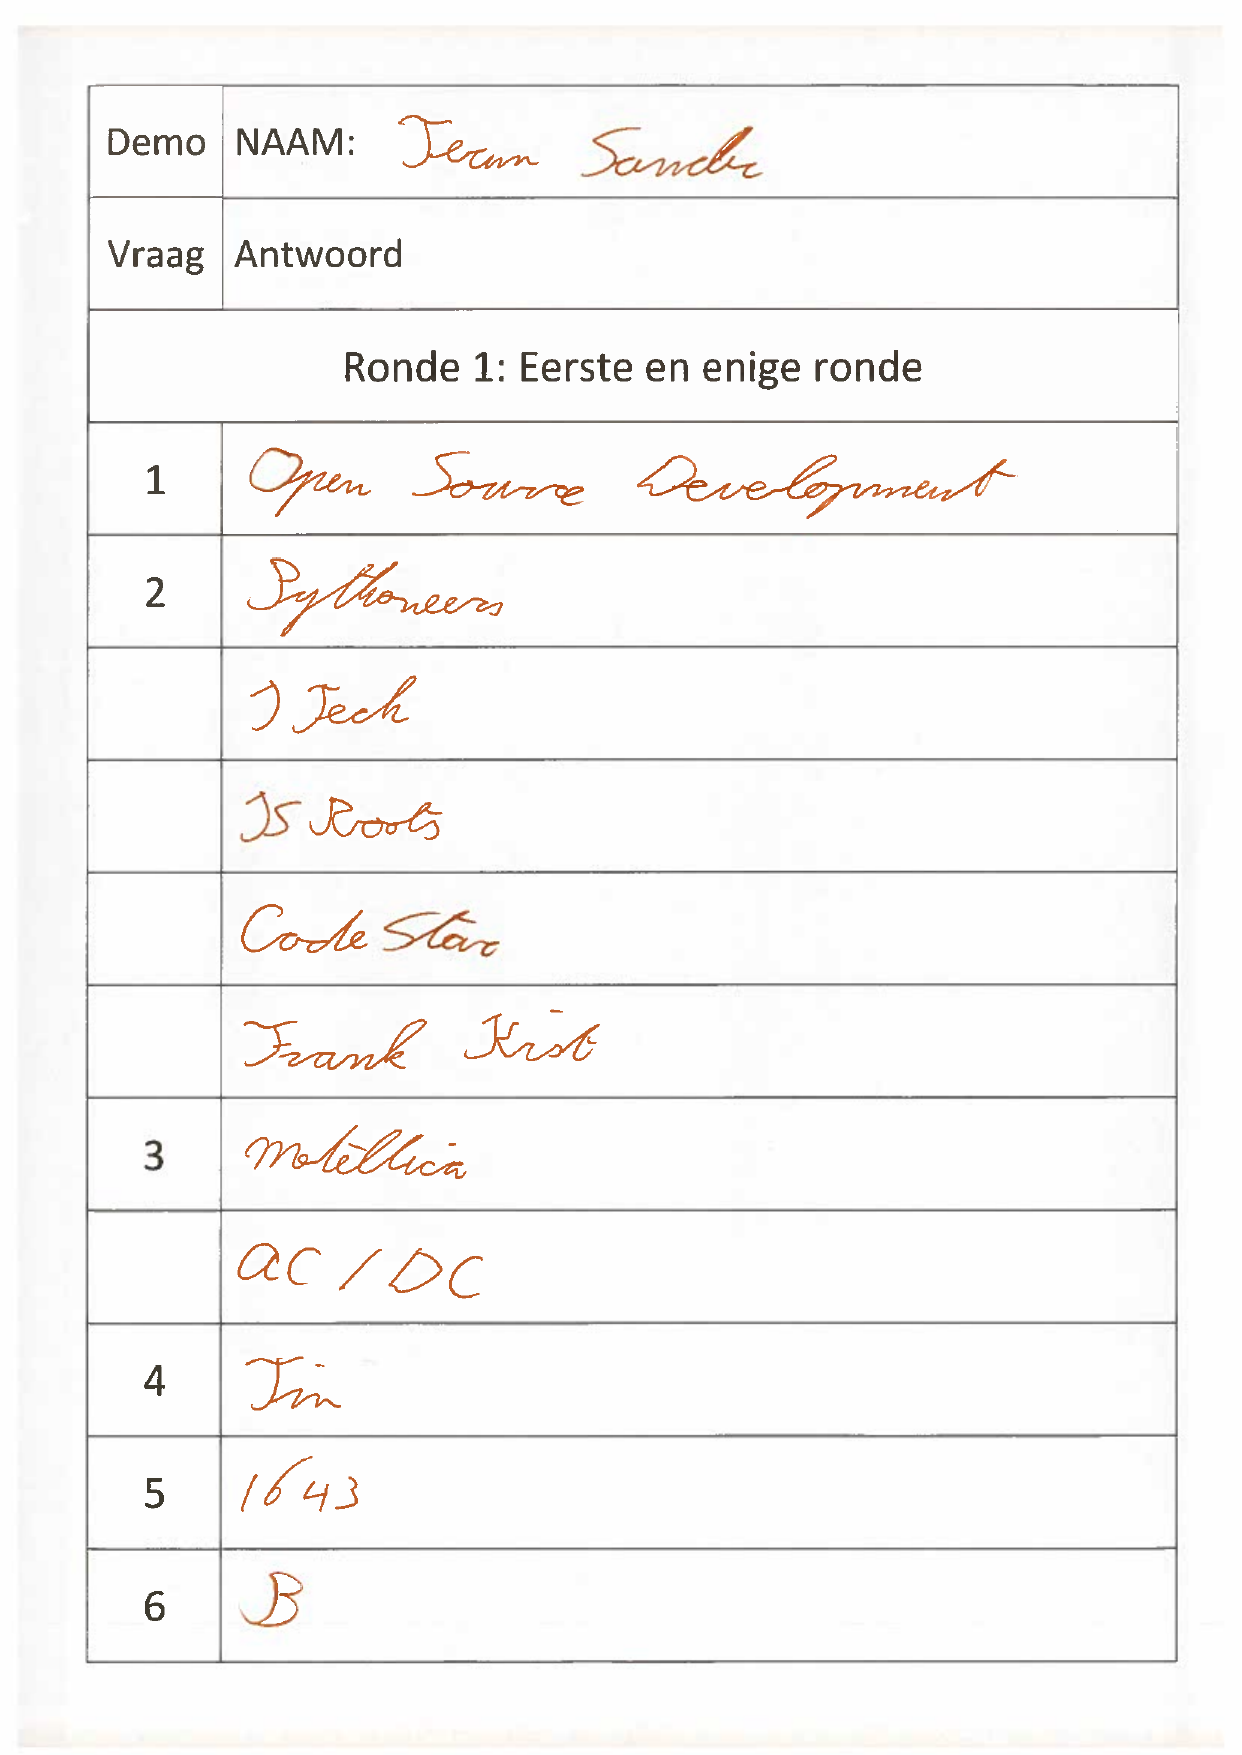 Demo NAAM: Team Sander
Vraag Antwoord
Ronde 1: Eerste en enige ronde
1 Open Source Development
2 Pythoneers
J Tech
JS Roots
Code Star
Frank Kist
3 Metallica
AC/DC
4 Tim
5 1643
6 B